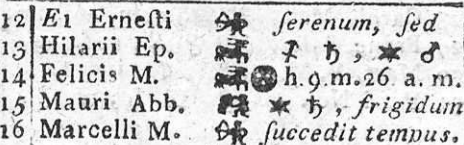 12 E1 Erneſti ♐ ſerenum, ſed
13 Hilarii Ep. ☿ ♄, ⚹ ♂
14 Felicis M. h. 9. m. 26. a. m.
15 Mauri Abb. ⚹ ♄, frigidum
16 Marcelli M. ſuccedit tempus.